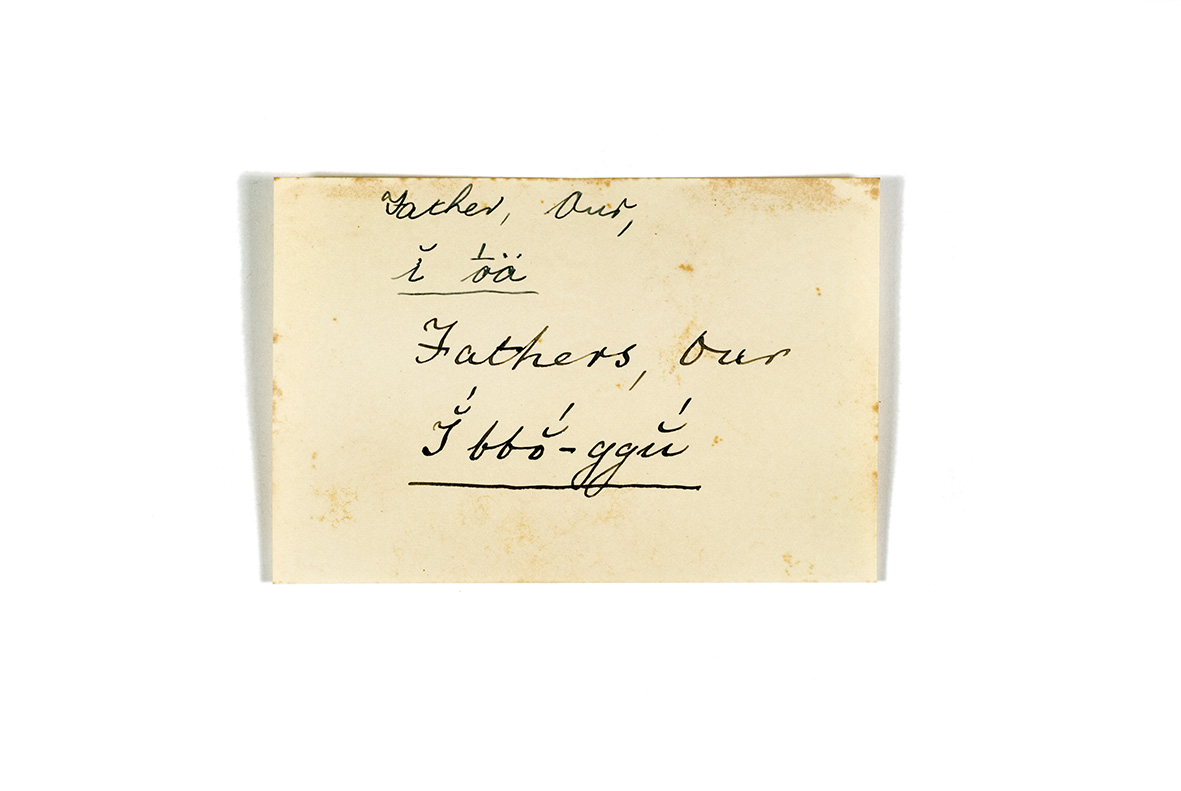 Father, Our,
ĭ ó̄ä
Fathers, Our
Ĭ́bbŏ́-ggŭ́